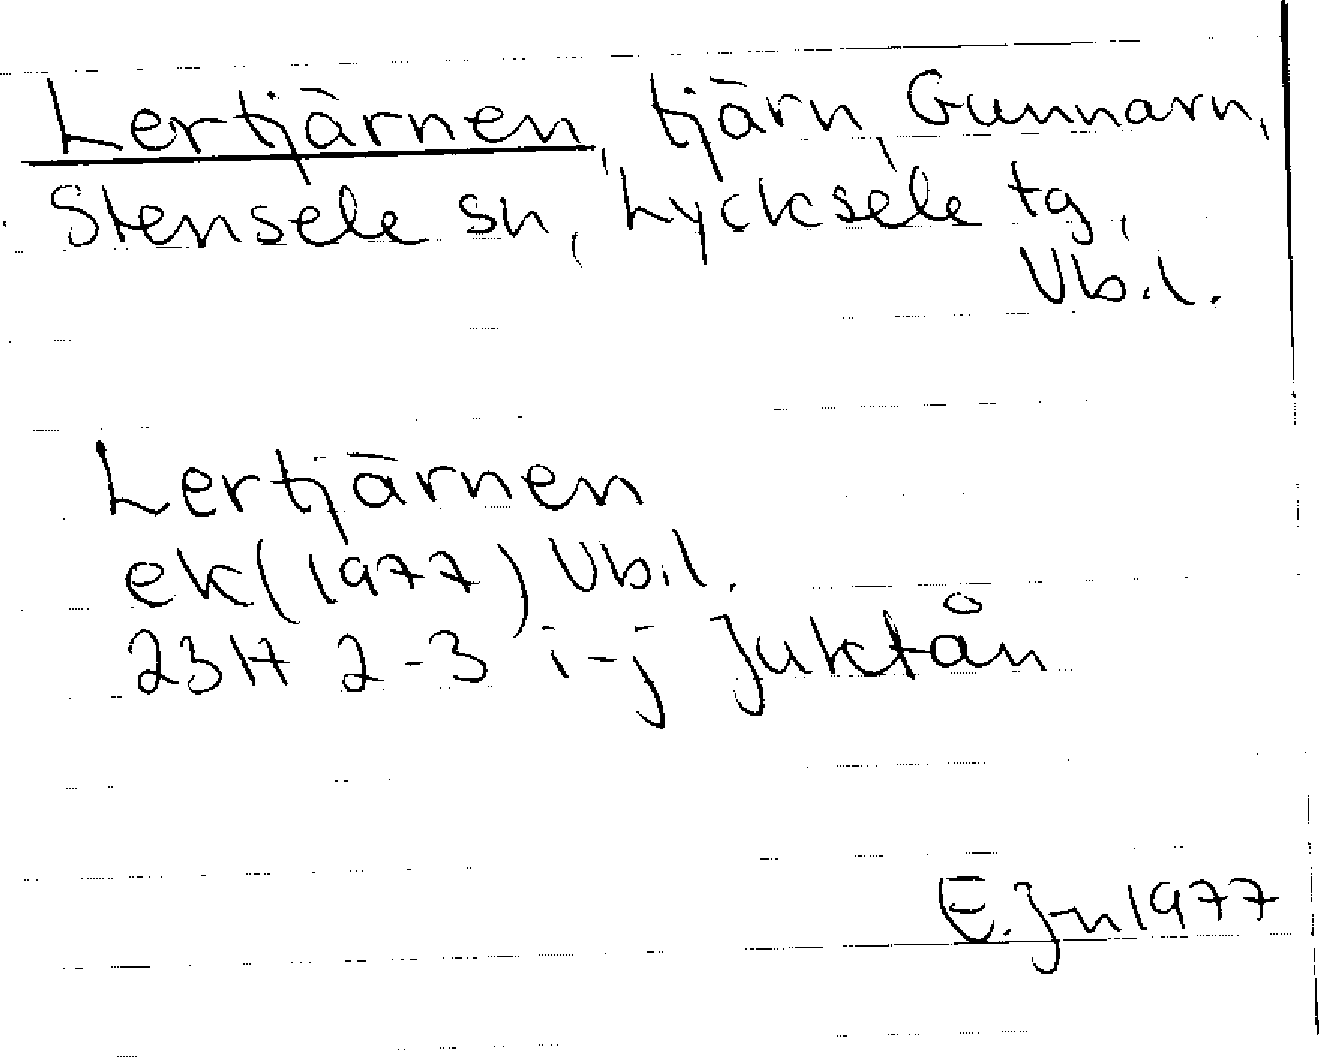 Lertjärnen, tjärn, Gunnarn,
Stensele sn, Lycksele tg,
Vb.l.
Lertjärnen
ek (1977) Vb.l.
23H 2-3 i-j Juktån
E. Jn 1977